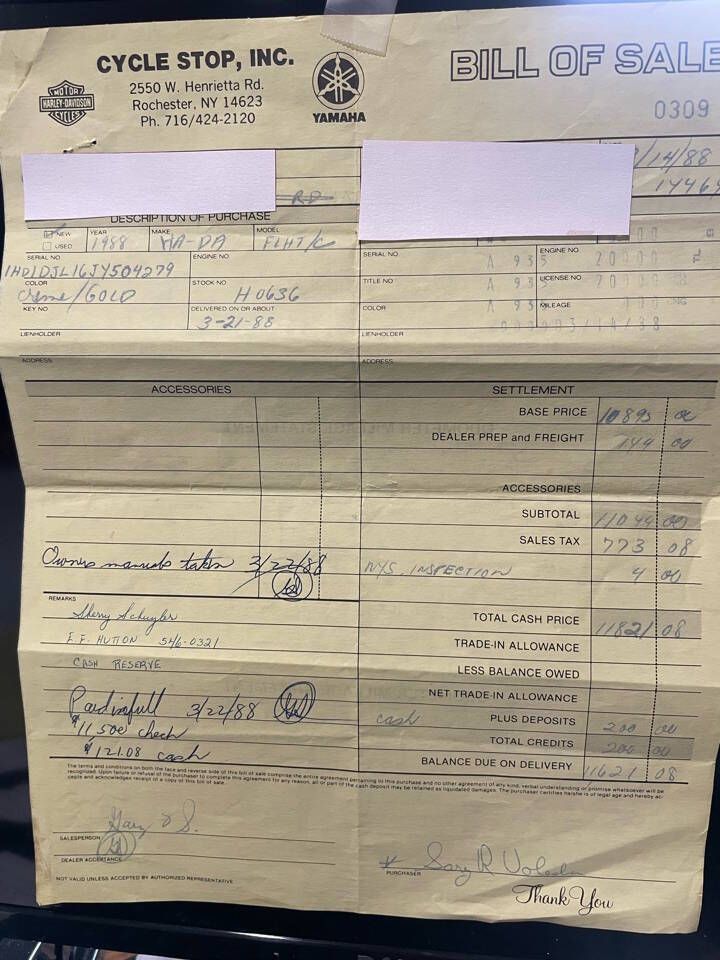 CYCLE STOP, INC.
2550 W. Henrietta Rd.
Rochester, NY 14623
Ph. 716/424-2120
MOTOR
HARLEY-DAVIDSON
CYCLES
YAMAHA
BILL OF SALE
0309
/14/88
1446
RD
DESCRIPTION OF PURCHASE
NEW
USED
YEAR
1988
MAKE
HA-DA
MODEL
FLHT/C
SERIAL NO
1HD1DJL16JY504279
ENGINE NO.
SERIAL NO
A 935
ENGINE NO.
20000
COLOR
Creme/GOLD
STOCK NO
H0636
TITLE NO
A 93
LICENSE NO.
KEY NO
DELIVERED ON OR ABOUT
3-21-88
COLOR
A 95
MILEAGE
LIENHOLDER
LIENHOLDER
ADDRESS
ADDRESS
ACCESSORIES
SETTLEMENT
BASE PRICE 10895 00
DEALER PREP and FREIGHT 149 00
ACCESSORIES
SUBTOTAL 11044 00
SALES TAX 773 08
Owners manuals taken 3/22/88
NYS INSPECTION 4 00
REMARKS
Sherry Schuyler
E.F. HUTTON 546-0321
CASH RESERVE
TOTAL CASH PRICE 11821 08
TRADE-IN ALLOWANCE
LESS BALANCE OWED
NET TRADE-IN ALLOWANCE
Paid in full 3/22/88
$11,500 check
$121.08 cash
cash PLUS DEPOSITS 200 00
TOTAL CREDITS 200 00
BALANCE DUE ON DELIVERY 11621 08
The terms and conditions on both the face and reverse side of this bill of sale comprise the entire agreement pertaining to this purchase and no other agreement of any kind, verbal understanding or promise whatsoever will be
recognized. Upon failure or refusal of the purchaser to complete this agreement for any reason, all or part of the cash deposit may be retained as liquidated damages. The purchaser certifies he/she is of legal age and hereby ac-
cepts and acknowledges receipt of a copy of this bill of sale.
Gary D S.
SALESPERSON
DEALER ACCEPTANCE
NOT VALID UNLESS ACCEPTED BY AUTHORIZED REPRESENTATIVE
PURCHASER
Thank You